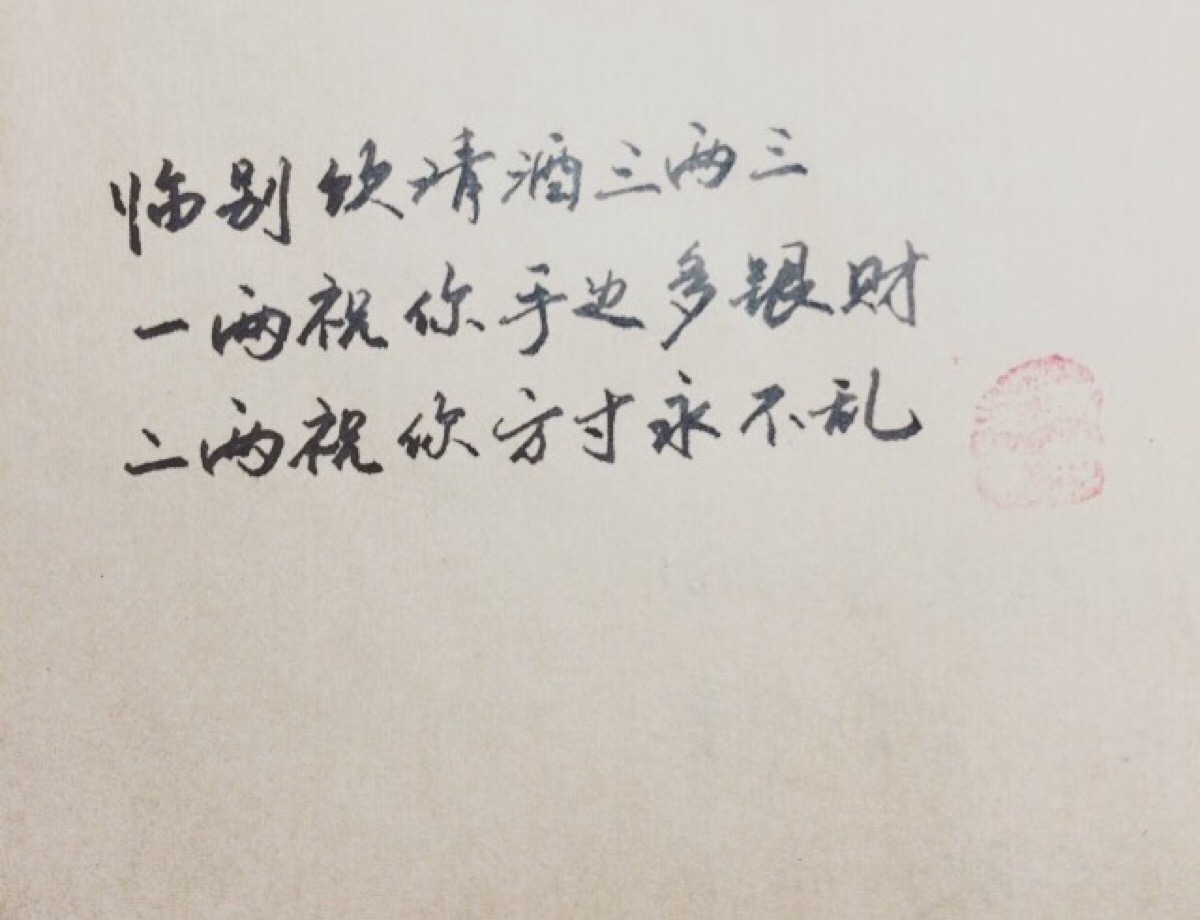 临别饮清酒三两三
一两祝你手边多银财
二两祝你方寸永不乱